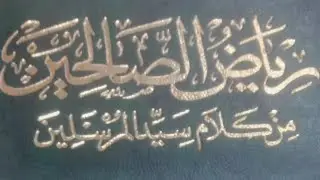 رِيَاضُ الصَّالِحِينَ
مِنْ كَلَامِ سَيِّدِ المُرْسَلِينَ